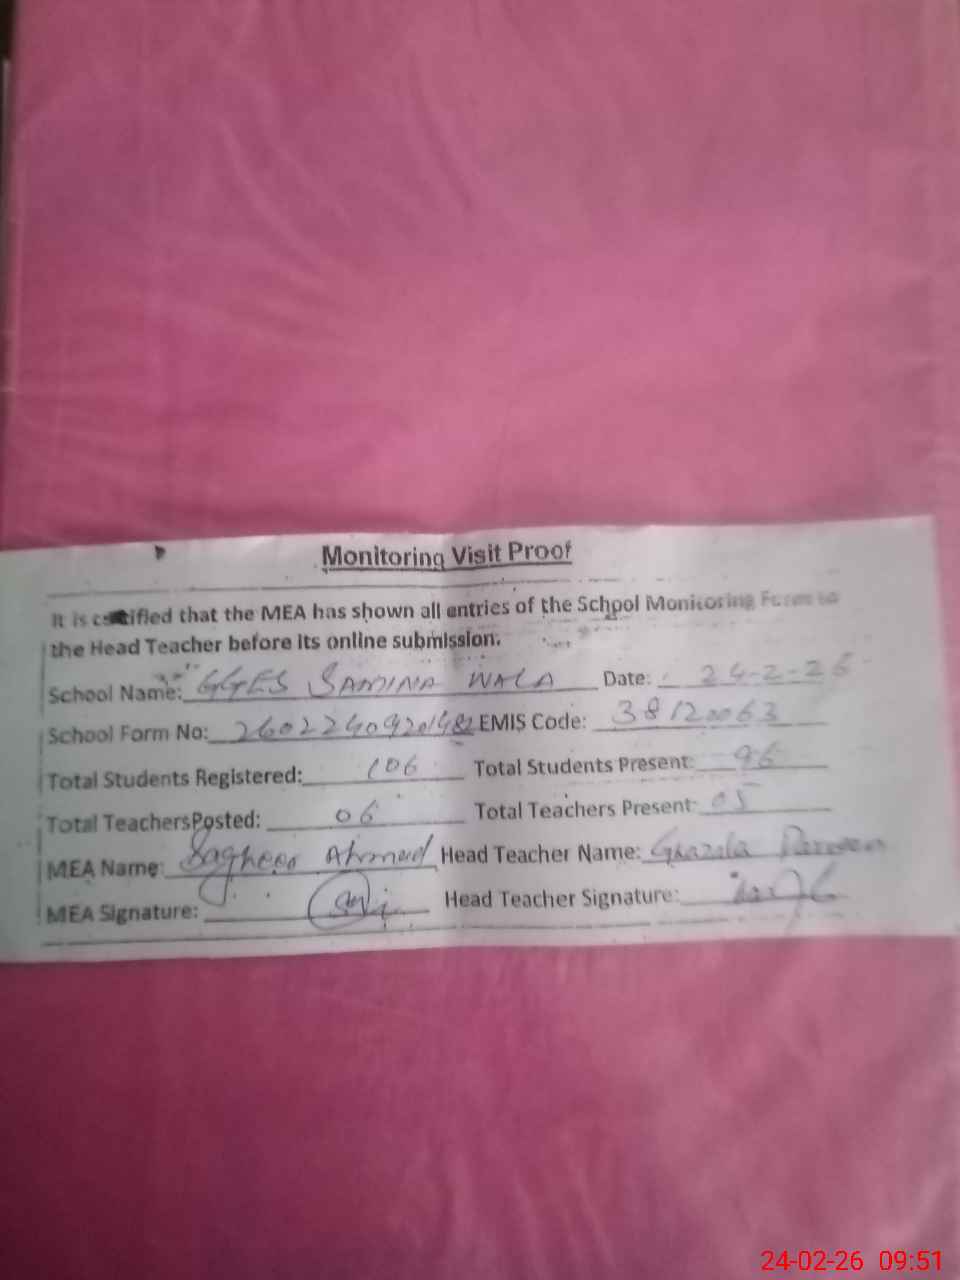 Monitoring Visit Proof
It is certified that the MEA has shown all entries of the School Monitoring Form to
the Head Teacher before its online submission.
School Name: GGES SAMINA WALA Date: 24-2-26
School Form No: 26022409201482 EMIS Code: 38120063
Total Students Registered: 106 Total Students Present: 96
Total TeachersPosted: 06 Total Teachers Present: 05
MEA Name: Sagheer Ahmed Head Teacher Name: Ghazala Parveen
MEA Signature: Head Teacher Signature:
24-02-26 09:51